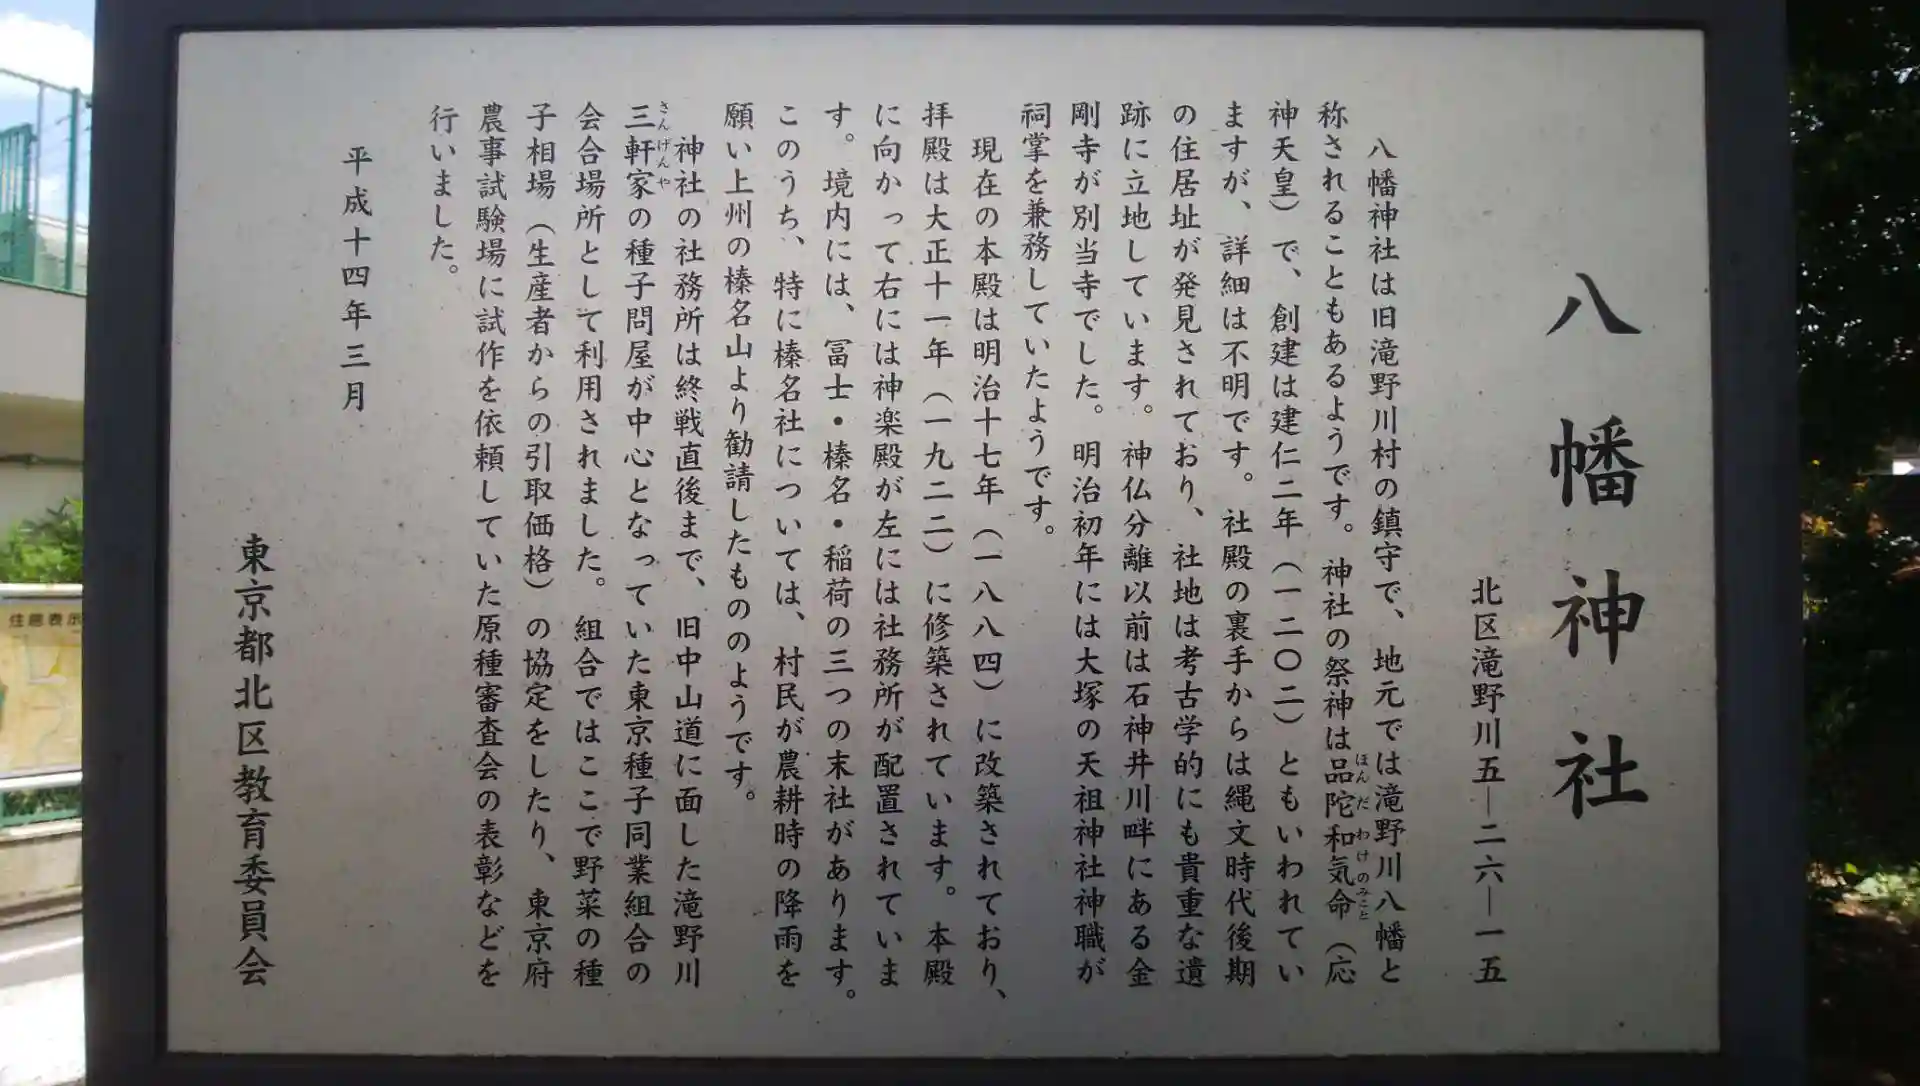 八幡神社
北区滝野川五―二六―一五
八幡神社は旧滝野川村の鎮守で、地元では滝野川八幡と
称されることもあるようです。神社の祭神は品陀和気命（応
ほんだわけのみこと
神天皇）で、創建は建仁二年（一二〇二）ともいわれてい
ますが、詳細は不明です。社殿の裏手からは縄文時代後期
の住居址が発見されており、社地は考古学的にも貴重な遺
跡に立地しています。神仏分離以前は石神井川畔にある金
剛寺が別当寺でした。明治初年には大塚の天祖神社神職が
祠掌を兼務していたようです。
現在の本殿は明治十七年（一八八四）に改築されており、
拝殿は大正十一年（一九二二）に修築されています。本殿
に向かって右には神楽殿が左には社務所が配置されていま
す。境内には、冨士・榛名・稲荷の三つの末社があります。
このうち、特に榛名社については、村民が農耕時の降雨を
願い上州の榛名山より勧請したもののようです。
神社の社務所は終戦直後まで、旧中山道に面した滝野川
三軒家の種子問屋が中心となっていた東京種子同業組合の
さんげんや
会合場所として利用されました。組合ではここで野菜の種
子相場（生産者からの引取価格）の協定をしたり、東京府
農事試験場に試作を依頼していた原種審査会の表彰などを
行いました。
平成十四年三月
東京都北区教育委員会
住居表示